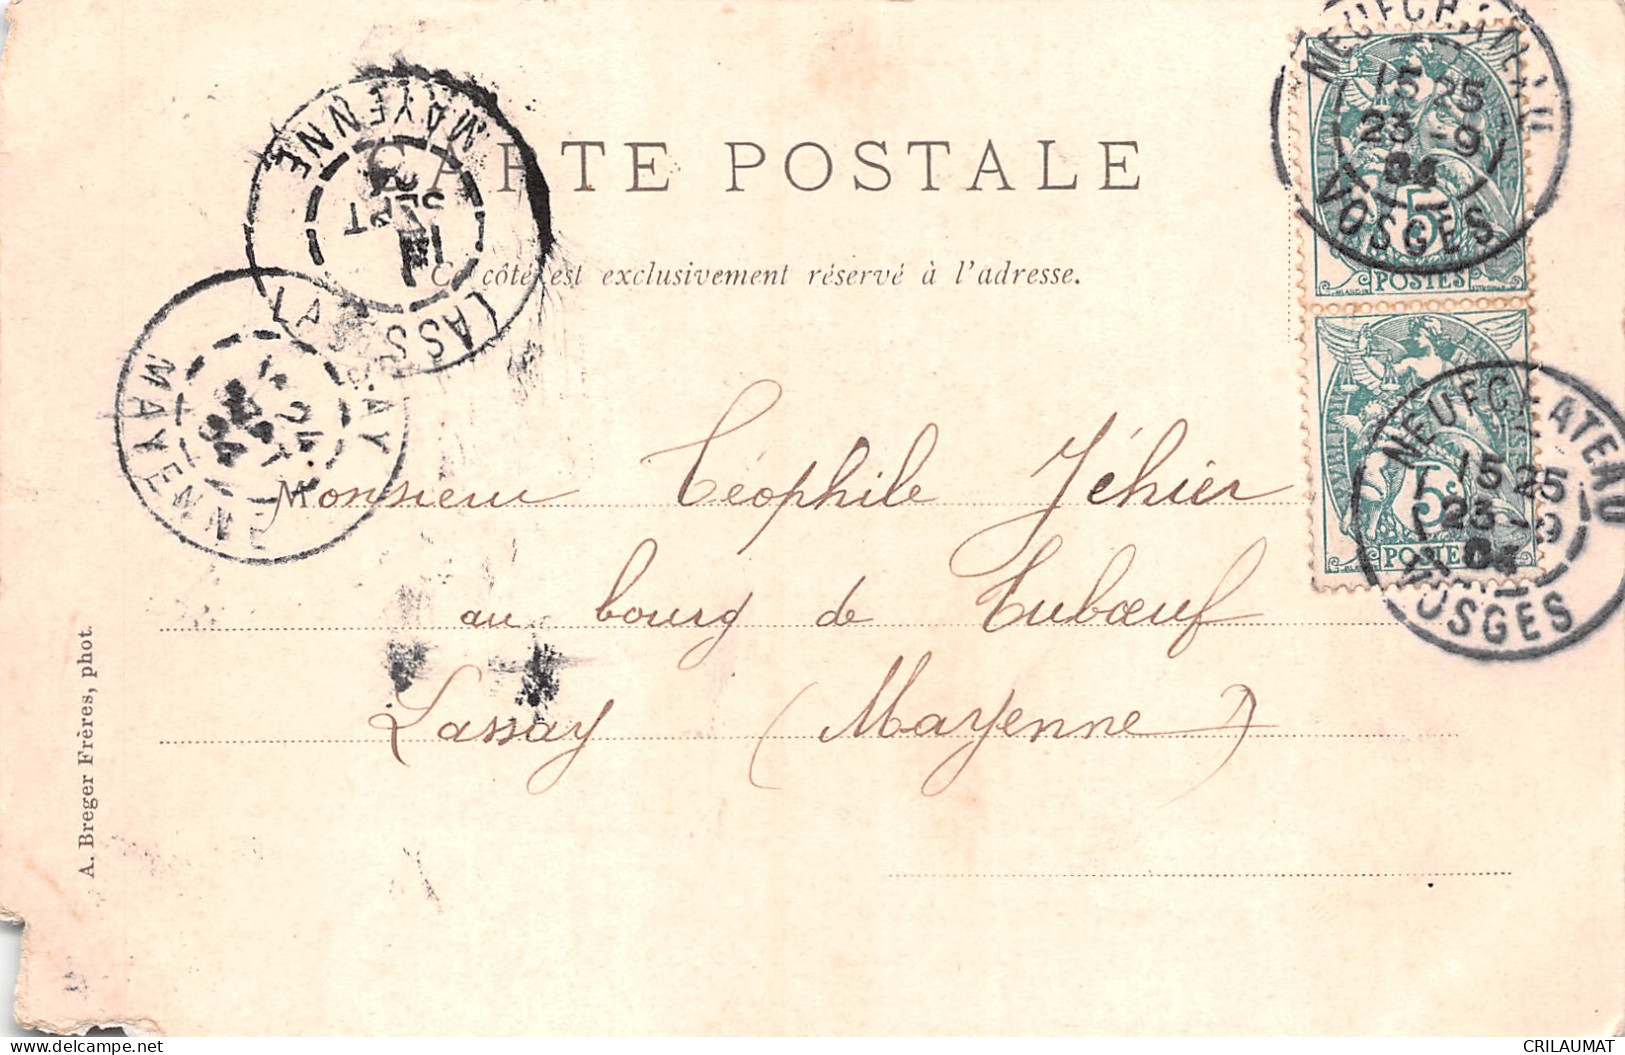 CARTE POSTALE
Ce côté est exclusivement réservé à l'adresse.
NEUFCHATEAU
15 25
23 - 9
04
VOSGES
5
POSTES
NEUFCHATEAU
15 25
23 - 9
04
VOSGES
5c
POSTES
MAYENNE
SEPT
LASSAY
LASSAY
24
MAYENNE
Monsieur Téophile Jéhier
au bourg de Tubœuf
Lassay (Mayenne)
A. Breger Frères, phot.
CRILAUMAT